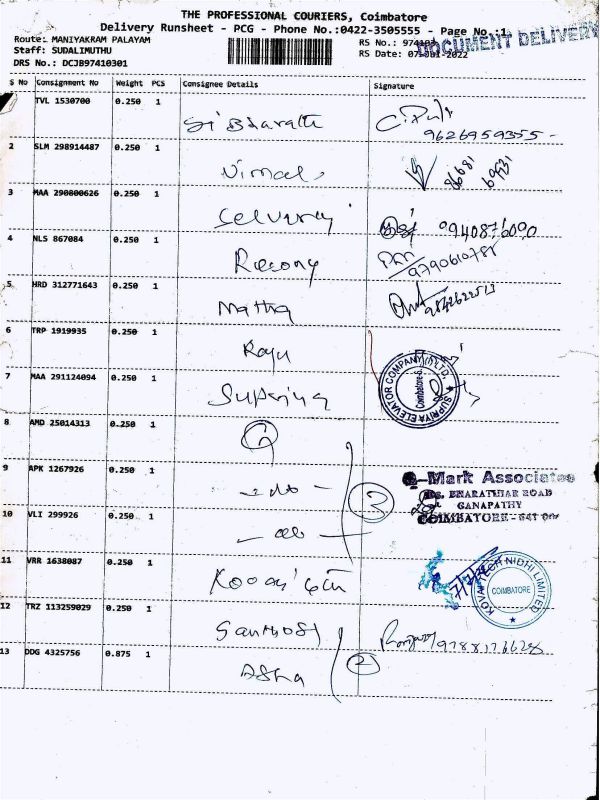 THE PROFESSIONAL COURIERS, Coimbatore
Delivery Runsheet - PCG - Phone No.:0422-3505555 - Page No.:1
DOCUMENT DELIVERY
Route: MANIYAKRAM PALAYAM
RS No.:
Staff: SUDALIMUTHU
RS Date:
DRS No.: DCJB97410301
S No Consignment No Weight PCS Consignee Details Signature
TVL 1530700 0.250 1 Sri Bharath
9626959355-
2 SLM 298914487 0.250 1 Vimal
86681
3 MAA 290800626 0.250 1 Selvaraj
940876090
4 NLS 867084 0.250 1
9790610781
5 HRD 312771643 0.250 1
6 TRP 1919935 0.250 1 Raju
7 MAA 291124094 0.250 1 Supriya
SUPRIYA ELEVATOR COMPANY (I) LTD.
Coimbatore-6
8 AMD 25014313 0.250 1 Q
9 APK 1267926 0.250 1 - do -
3
Q-Mark Associates
BHARATHIAR ROAD
GANAPATHY
COIMBATORE - 641 006
10 VLI 299926 0.250 1 - do -
11 VRR 1638087 0.250 1
KOVAI TECH NIDHI LIMITED
COIMBATORE
12 TRZ 113259029 0.250 1 Santhosh
13 DDG 4325756 0.875 1 Asha
2